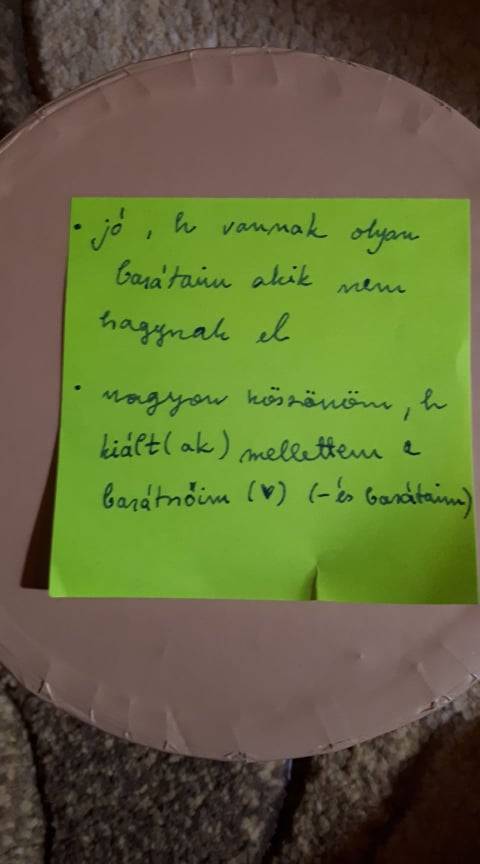 • jó, h vannak olyan
barátaim akik nem
hagynak el
• nagyon köszönöm, h
kiált(ak) mellettem a
barátnőim (♥) (-és barátaim)